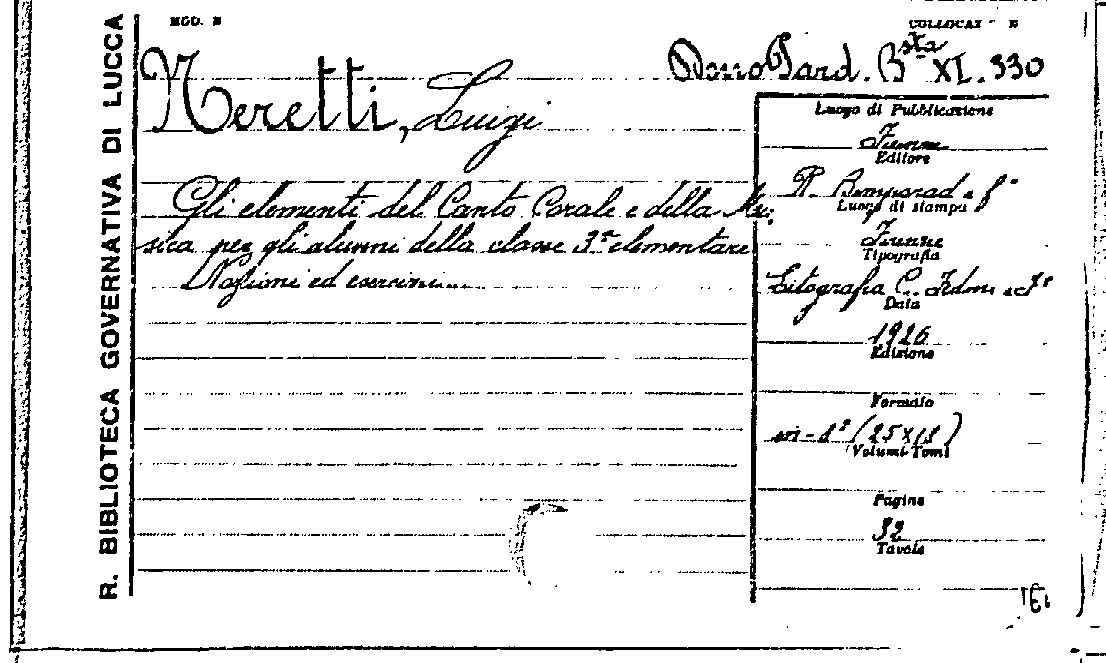 R. BIBLIOTECA GOVERNATIVA DI LUCCA
MOD. B
COLLOCAZ
Dono Pard. Bsta XI. 330
Neretti, Luigi
Gli elementi del Canto Corale e della Mu-
sica per gli alunni della classe 3ª elementare
Nozioni ed esercizi....
Luogo di Pubblicazione
Firenze
Editore
R. Bemporad e f°
Luogo di stampa
Firenze
Tipografia
Litografia C.
Data
1926
Edizione
Formato
in-8° (25x18)
Volumi-Tomi
Pagine
32
Tavole